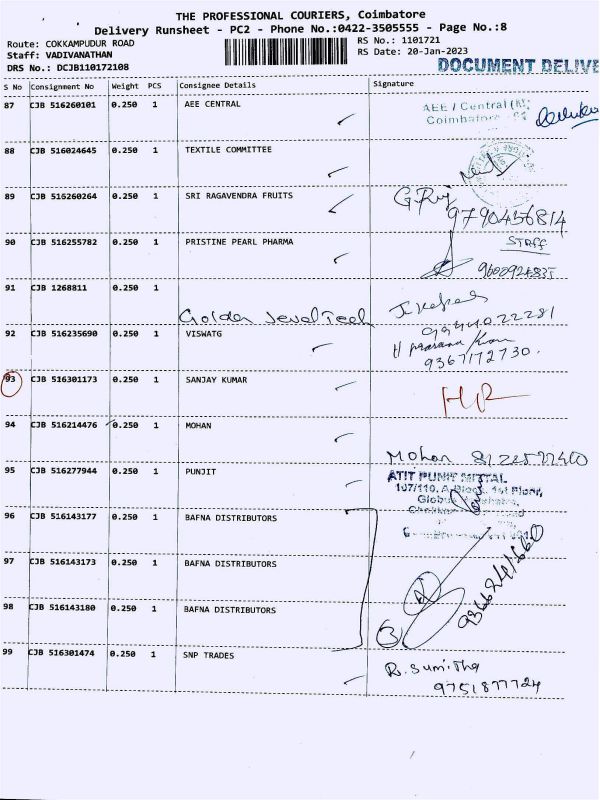 THE PROFESSIONAL COURIERS, Coimbatore
Delivery Runsheet - PC2 - Phone No.:0422-3505555 - Page No.:8
Route: COKKAMPUDUR ROAD RS No.: 1101721
Staff: VADIVANATHAN RS Date: 20-Jan-2023
DRS No.: DCJB110172108 DOCUMENT DELIVE
S No Consignment No Weight PCS Consignee Details Signature
87 CJB 516260101 0.250 1 AEE CENTRAL AEE / Central
Coimbatore
88 CJB 516024645 0.250 1 TEXTILE COMMITTEE
89 CJB 516260264 0.250 1 SRI RAGAVENDRA FRUITS
9790456814
90 CJB 516255782 0.250 1 PRISTINE PEARL PHARMA STAFF
91 CJB 1268811 0.250 1
Golden Jewel Tech
9944022281
92 CJB 516235690 0.250 1 VISWATG
9367172730.
93 CJB 516301173 0.250 1 SANJAY KUMAR
94 CJB 516214476 0.250 1 MOHAN
Mohan
95 CJB 516277944 0.250 1 PUNJIT ATIT PUNIT MITTAL
107/110, A Block, 1st Floor,
96 CJB 516143177 0.250 1 BAFNA DISTRIBUTORS
97 CJB 516143173 0.250 1 BAFNA DISTRIBUTORS
98 CJB 516143180 0.250 1 BAFNA DISTRIBUTORS
3
99 CJB 516301474 0.250 1 SNP TRADES
R. Sumitha
9751877724